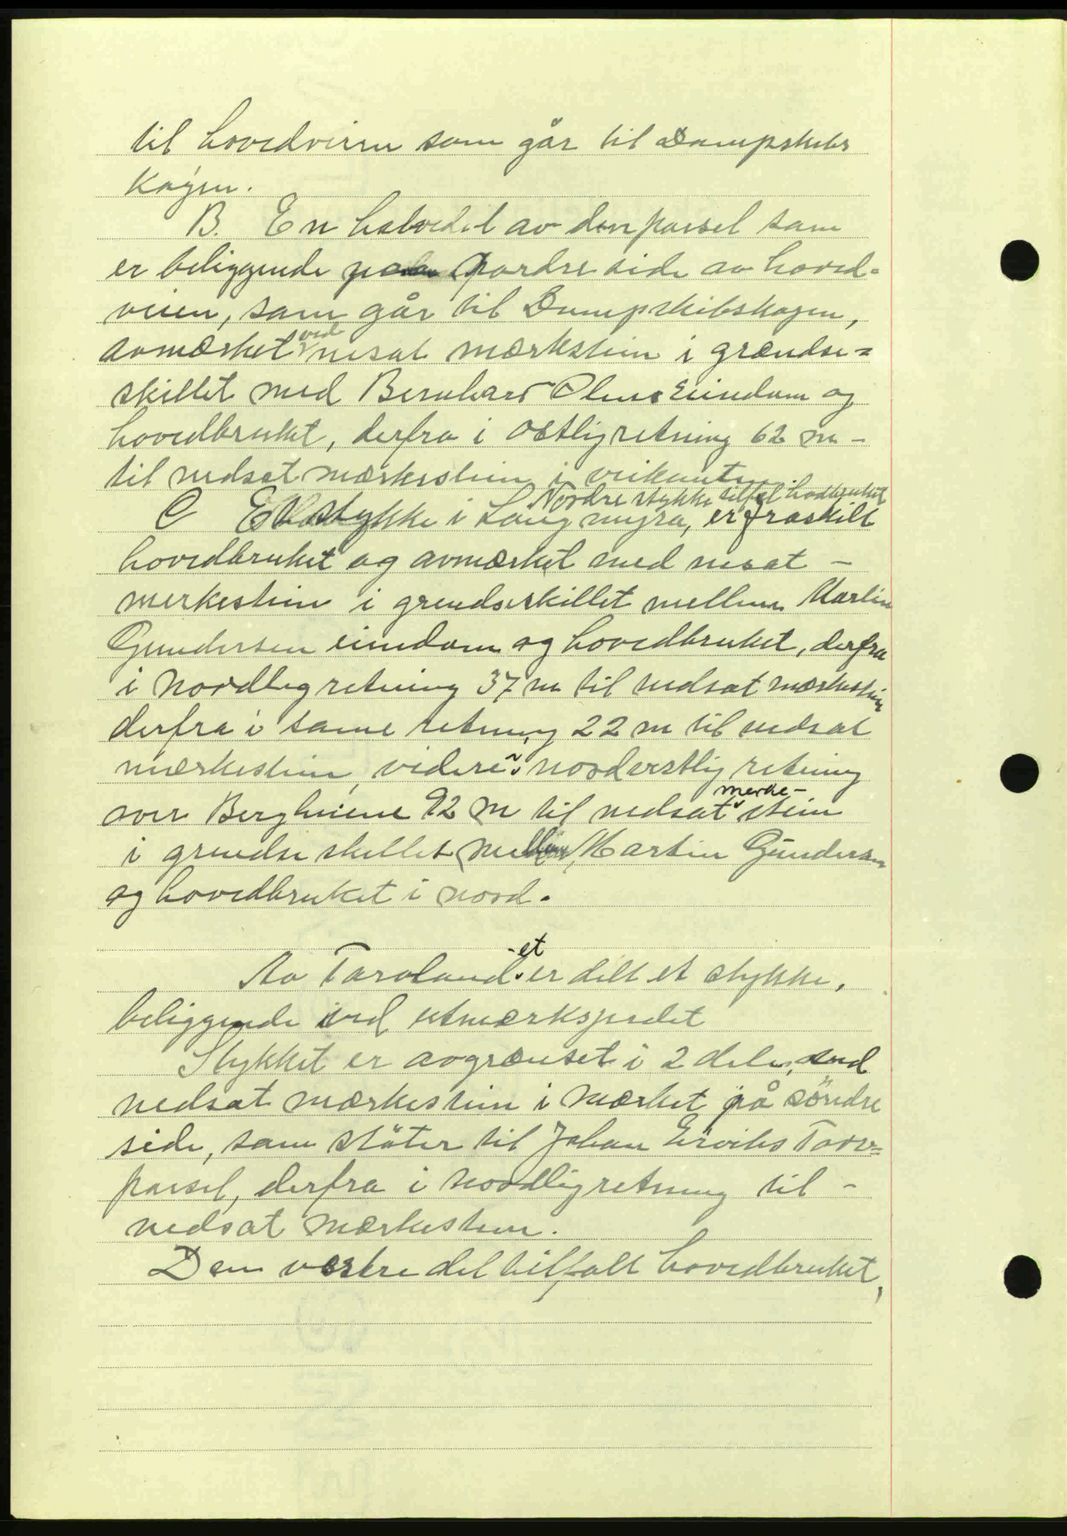 til hovedveien som går til Dampskibs
Kajen.
B. En halvedel av den parsel som
er beliggende nordre side av hoved-
veien, som går til Dampskibskagen,
avmærket ved nesat mærkstein i grændse=
skillet med Bernhard Olsens Eiendom og
hovedbruket, derfra i østlig retning 62 m -
til nedsat mærkestein i veikanten
Nordre stykke tilfal hodbruket
C Et stykke i Langmyra, er fraskilt
hovedbruket og avmærket med nesat -
merkestein i grendseskillet mellem Martin
Gundersen eiendom og hovedbruket, derfra
i Nordlig retning 37 m til nedsat mærkestein
derfra i samme retning 22 m til nedsat
mærkestein, videre i nordøstlig retning
over Bergheiene 92 m til nedsat merke- stein
i grendseskillet mellem Martin Gundersen
og hovedbruket i nord.
Av Tarvland et er delt et stykke,
beliggende ved utmærksjordet
Stykket er avgrænset i 2 dele, ved
nedsat mærkestein i mærket på söndre
side, som støter til Johan Erviks Tarv=
parsel, derfra i nordlig retning til -
nedsat mærkestein.
Den vestre del tilfalt hovedbruket,